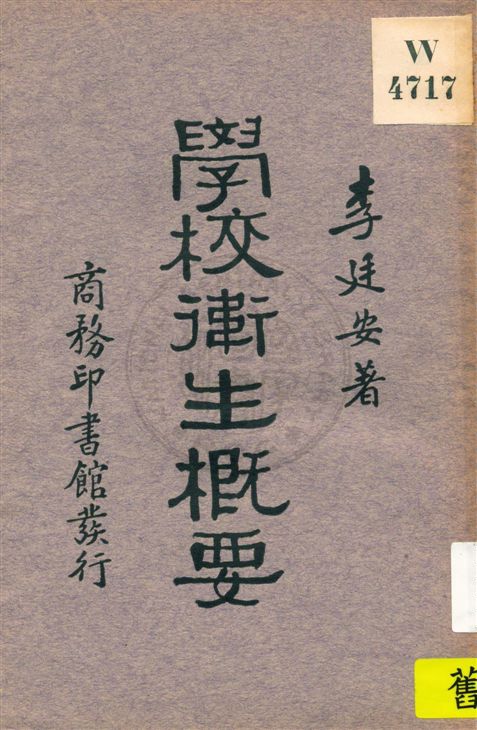 W
4717
李廷安著
學校衛生概要
商務印書館發行
舊